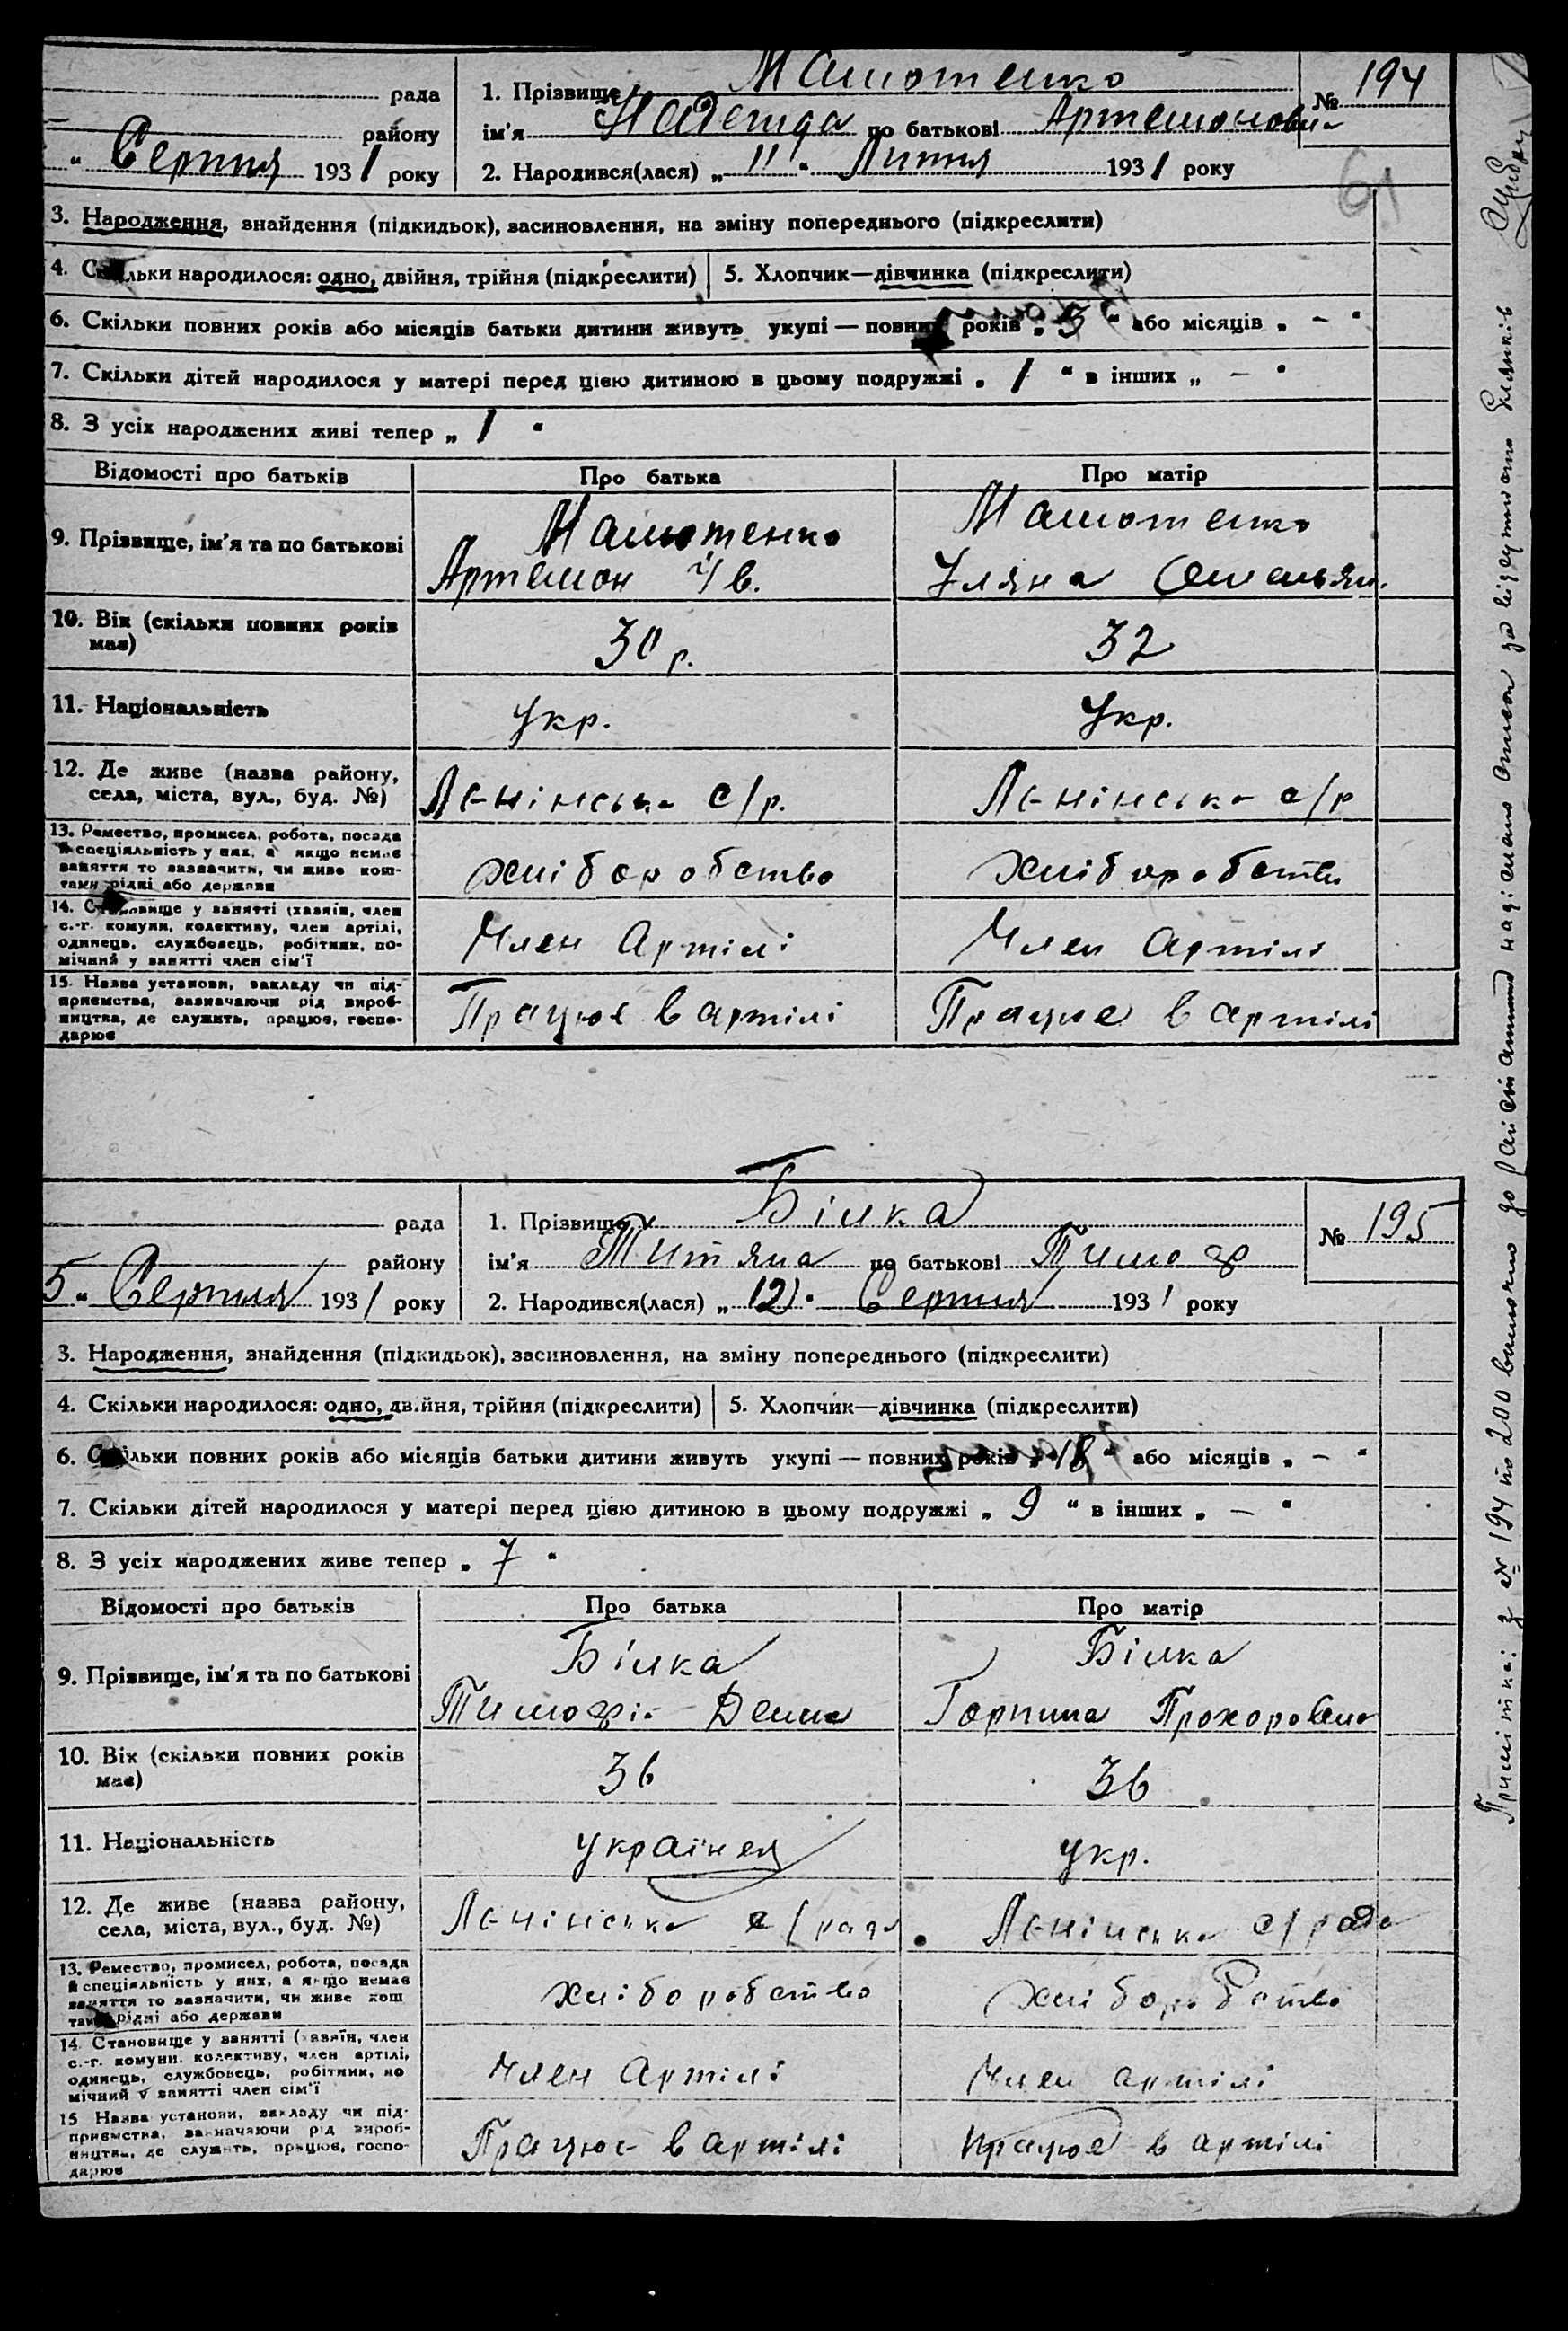 рада
району
" Серпня 1931 року
1. Прізвище Малютенко
ім'я Надежда по батькові Артемоновна
№ 194
2. Народився(лася) „ 11 " Липня 1931 року
61
3. Народження, знайдення (підкидьок), засиновлення, на зміну попереднього (підкреслити)
4. Скільки народилося: одно, двійня, трійня (підкреслити)
5. Хлопчик—дівчинка (підкреслити)
6. Скільки повних років або місяців батьки дитини живуть укупі — повних років „ 3 " або місяців „ – "
7. Скільки дітей народилося у матері перед цією дитиною в цьому подружжі „ 1 " в інших „ – "
8. З усіх народжених живі тепер „ 1 "
Відомості про батьків
Про батька
Про матір
9. Прізвище, ім'я та по батькові
Малютенко
Артемон Ів.
Малютенко
Уляна Омельян.
10. Вік (скільки повних років
має)
30 р.
32
11. Національність
укр.
Укр.
12. Де живе (назва району,
села, міста, вул., буд. №)
Ленінська с/р.
Ленінська с/р
13. Ремество, промисел, робота, посада
й спеціяльність у них, а якщо немає
заняття то зазначити, чи живе кош-
тами рідні або держави
хліборобство
хліборобство
14. Становище у занятті (хазяїн, член
с.-г. комуни, колективу, член артілі,
одинець, службовець, робітник, по-
мічний у занятті член сім'ї
Член Артілі
Член артілі
15. Назва установи, закладу чи під-
приємства, зазначаючи рід вироб-
ництва, де служить, працює, госпо-
дарює
Працює в артілі
Працює в артілі
рада
району
5 " Серпня 1931 року
1. Прізвище Білка
ім'я Титяна по батькові Тимоф
№ 195
2. Народився(лася) „ 2 " Серпня 1931 року
3. Народження, знайдення (підкидьок), засиновлення, на зміну попереднього (підкреслити)
4. Скільки народилося: одно, двійня, трійня (підкреслити)
5. Хлопчик—дівчинка (підкреслити)
6. Скільки повних років або місяців батьки дитини живуть укупі — повних років „ 18 " або місяців „ – "
7. Скільки дітей народилося у матері перед цією дитиною в цьому подружжі „ 9 " в інших „ – "
8. З усіх народжених живе тепер „ 7 "
Відомості про батьків
Про батька
Про матір
9. Прізвище, ім'я та по батькові
Білка
Тимофі
Білка
Горпина Прохоровна
10. Вік (скільки повних років
має)
36
36
11. Національність
українец
укр.
12. Де живе (назва району,
села, міста, вул., буд. №)
Ленінська с/рада
Ленінська с/рада
13. Ремество, промисел, робота, посада
й спеціяльність у них, а якщо немає
заняття то зазначити, чи живе кош
тами рідні або держави
хліборобство
хліборобство
14. Становище у занятті (хазяїн, член
с.-г. комуни, колективу, член артілі,
одинець, службовець, робітник, по
мічний у занятті член сім'ї
Член Артілі
Член артілі
15 Назва установи, закладу чи під-
приємства, зазначаючи рід вироб-
ництва, де служить, працює, госпо-
дарює
Працює в артілі
працює в артілі
Примітка: з № 194 по 200 включно до надіслано за